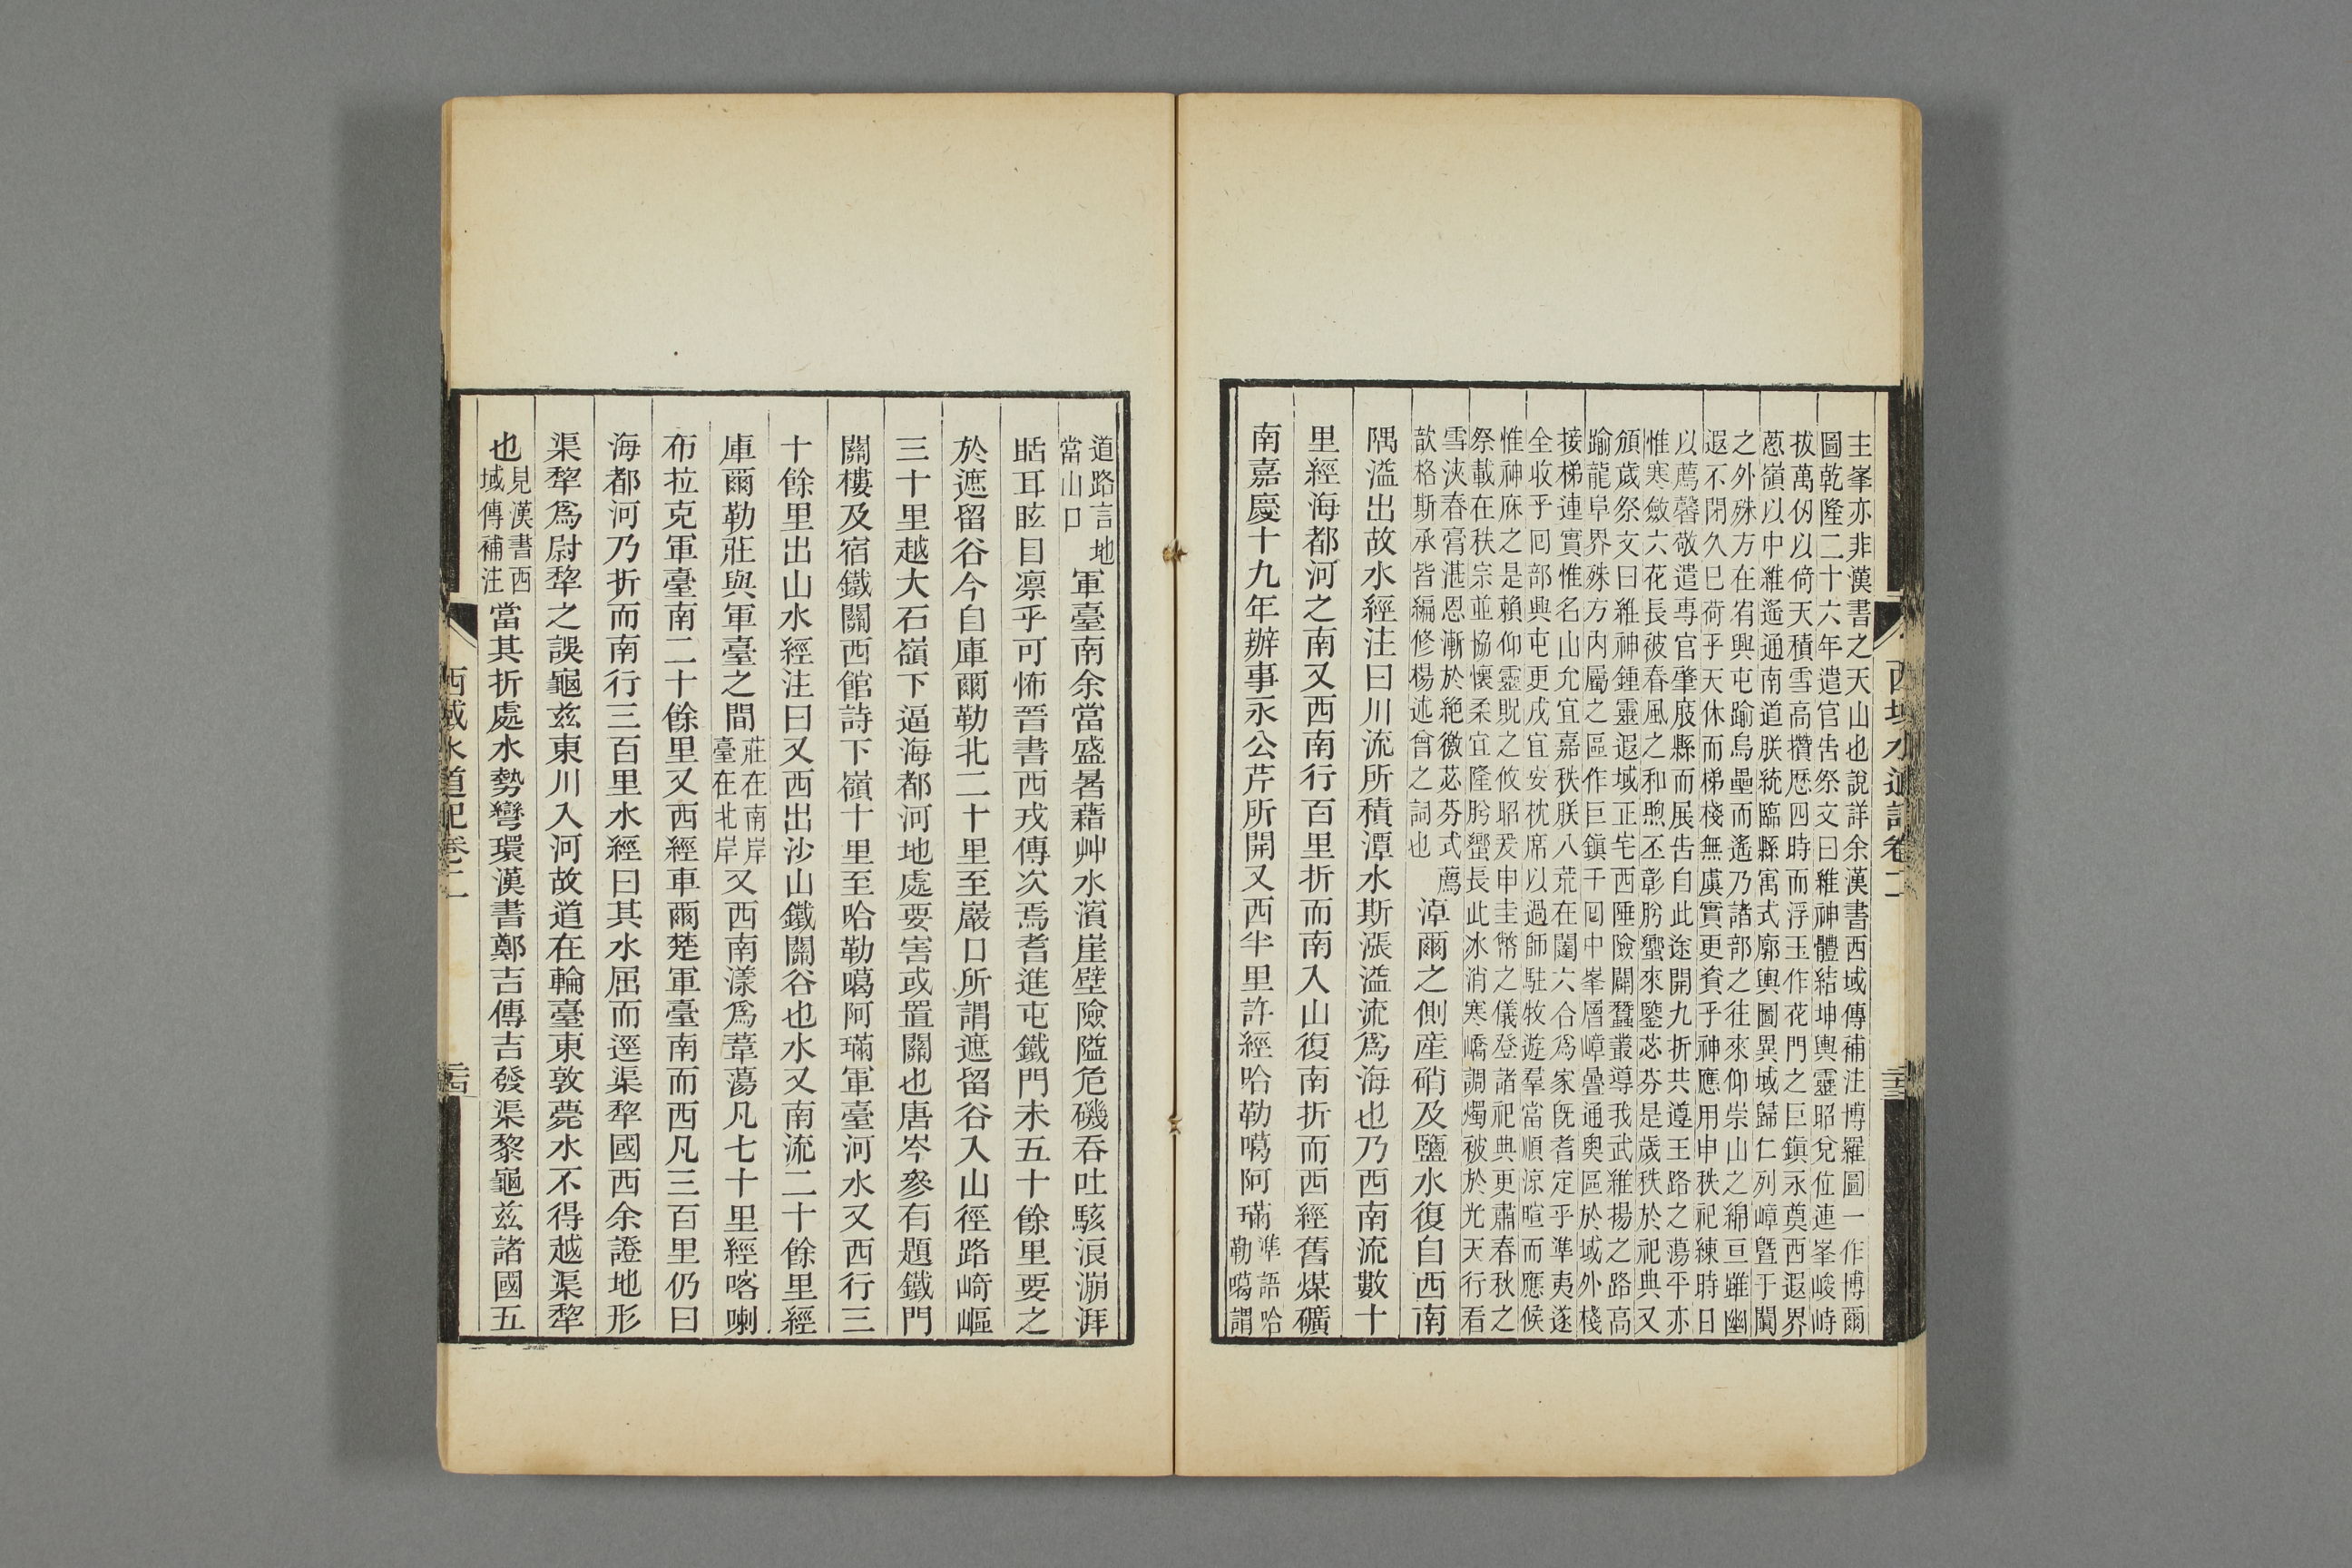 主峯亦非漢書之天山也說詳余漢書西域傳補注博羅圖一作博爾
圖乾隆二十六年遣官告祭文曰維神體結坤輿靈昭兌位連峯峻峙
拔萬仞以倚天積雪高攢歷四時而浮玉作花門之巨鎭永奠西遐界
蔥嶺以中維遙通南道朕統臨縣寓式廓輿圖異域歸仁列嶂曁于闐
之外殊方在宥興屯踰烏壘而遙乃諸部之往來仰崇山之綿亘雖幽
遐不閉久已荷乎天休而梯棧無虞實更資乎神應用申秩祀練時日
以薦馨敬遣專官肇庪縣而展告自此途開九折共遵王路之蕩平亦
惟寒斂六花長被春風之和煦丕彰肸蠁來鑒苾芬是歲秩於祀典又
頒歲祭文曰維神鍾靈遐域正宅西陲險闢蠶叢導我武維揚之路高
踰龍阜界殊方內屬之區作巨鎭千囘中峯層嶂疊通奧區於域外棧
接梯連實惟名山允宜嘉秩朕八荒在闥六合爲家旣耆定乎準夷遂
全收乎囘部興屯更戍宜安枕席以過師駐牧遊羣當順涼暄而應候
惟神庥之是賴仰靈貺之攸昭爰申圭幣之儀登諸祀典更肅春秋之
祭載在秩宗並協懷柔宜隆肸蠁長此冰消寒嶠調燭被於光天行看
雪浹春膏湛恩漸於絕徼苾芬式薦
歆格斯承皆編修楊述曾之詞也
淖爾之側產硝及鹽水復自西南
隅溢出故水經注曰川流所積潭水斯漲溢流爲海也乃西南流數十
里經海都河之南又西南行百里折而南入山復南折而西經舊煤礦
南嘉慶十九年辦事永公芹所開又西半里許經哈勒噶阿璊準語哈
勒噶謂
西域水道記卷二 三三
道路言地
當山口
軍臺南余當盛暑藉艸水濱崖壁險隘危磯吞吐駭浪漰湃
聒耳眩目凛乎可怖晉書西戎傳次焉耆進屯鐵門未五十餘里要之
於遮留谷今自庫爾勒北二十里至巖口所謂遮留谷入山徑路崎嶇
三十里越大石嶺下逼海都河地處要害或置關也唐岑參有題鐵門
關樓及宿鐵關西館詩下嶺十里至哈勒噶阿璊軍臺河水又西行三
十餘里出山水經注曰又西出沙山鐵關谷也水又南流二十餘里經
庫爾勒莊與軍臺之間莊在南岸
臺在北岸
又西南漾爲葦蕩凡七十里經喀喇
布拉克軍臺南二十餘里又西經車爾楚軍臺南而西凡三百里仍曰
海都河乃折而南行三百里水經曰其水屈而逕渠犂國西余證地形
渠犂爲尉犂之誤龜兹東川入河故道在輪臺東敦薨水不得越渠犂
也見漢書西
域傳補注
當其折處水勢彎環漢書鄭吉傳吉發渠黎龜兹諸國五
西域水道記卷二 三四